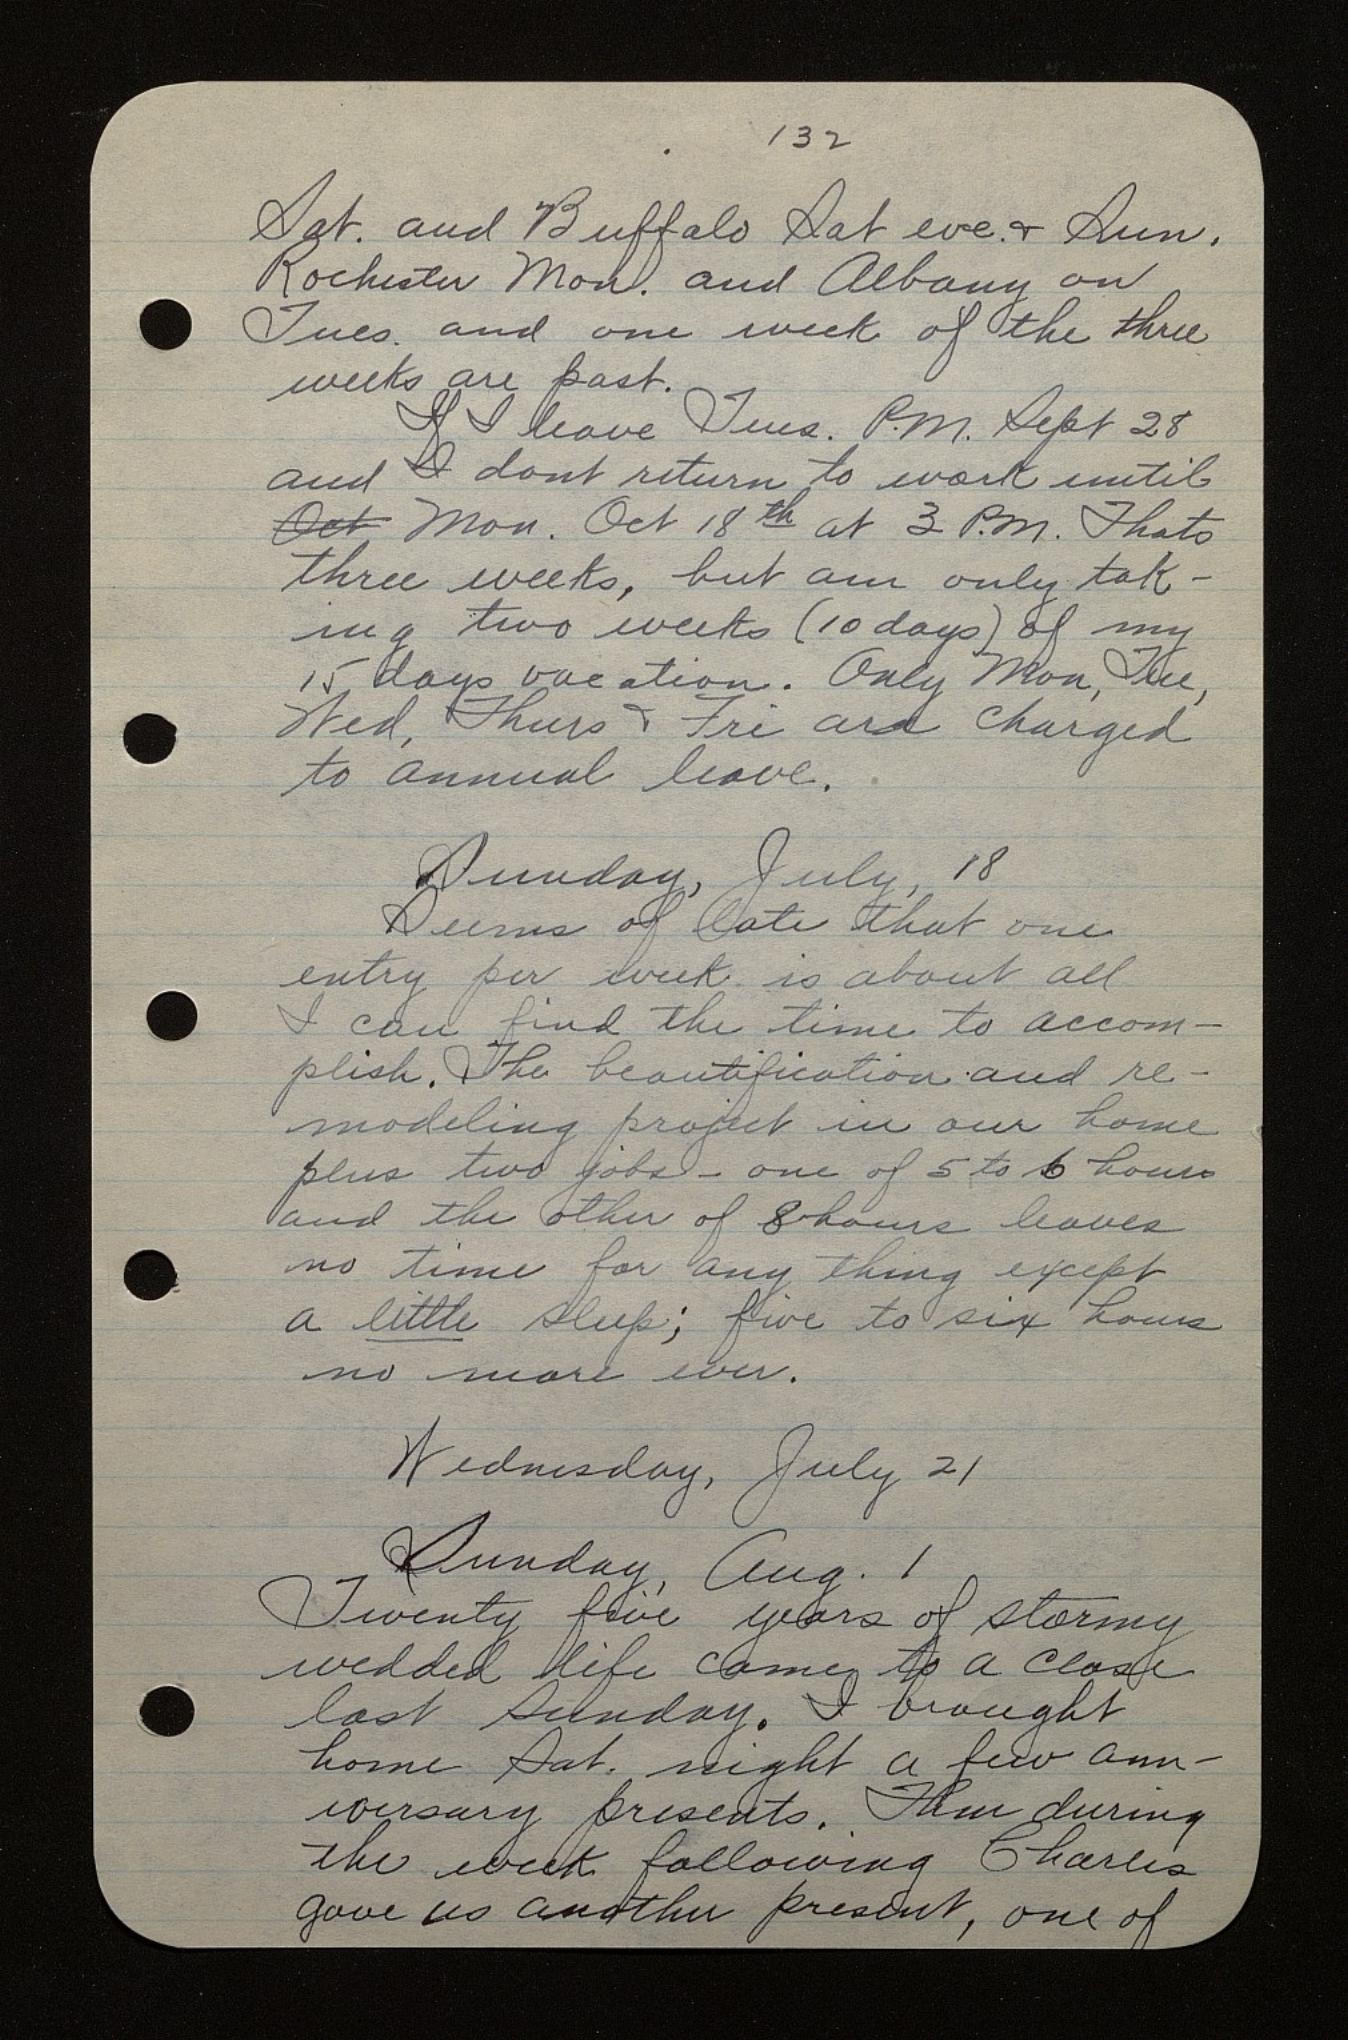 132
Sat. and Buffalo Sat eve. & Sun.
Rochester Mon. and Albany on
Tues. and one week of the three
weeks are past.
If I leave Tues. P.M. Sept 28
and I dont return to work until
Oct Mon. Oct 18th at 3 P.M. Thats
three weeks, but am only tak-
ing two weeks (10 days) of my
15 days vacation. Only Mon, Tue,
Wed, Thurs & Fri are charged
to annual leave.
Sunday, July, 18
Seems of late that one
entry per week is about all
I can find the time to accom-
plish. The beautification and re-
modeling project in our home
plus two jobs - one of 5 to 6 hours
and the other of 8 hours leaves
no time for any thing except
a little sleep; five to six hours
no more ever.
Wednesday, July 21
Sunday, Aug. 1
Twenty five years of stormy
wedded life came to a close
last Sunday. I brought
home Sat. night a few ann-
iversary presents. Then during
the week following Charles
gave us another present, one of